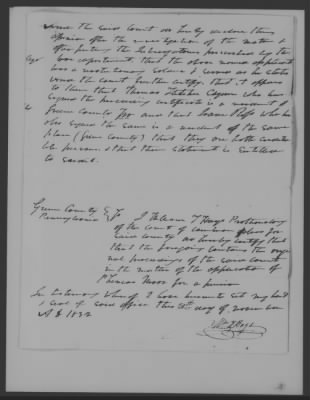 And the said Court do hereby declare their
opinion after the investigation of the matter &
after putting the Interrogatories prescribed by the
War department, that the above named applicant
was a revolutionary soldier & served as he states
And the Court further certifies that it appears
to them that Thomas Fletcher who has
signed the preceding certificate is a resident of
Green County and that Isaac who has
also signed the same is a resident of the same
place (Green County) that they are both credible
persons & that their statement is entitled
to credit.
Green County
Pennsylvania I William T Hays Prothonotary
of the court of common pleas for
said county do hereby certify that
that the foregoing contains the origi
nal proceedings of the said court
in the matter of the application of
Thomas Moor for a pension
In testimony whereof I have hereunto set my hand
& seal of said office this day of
A D 1832
Wm T Hays